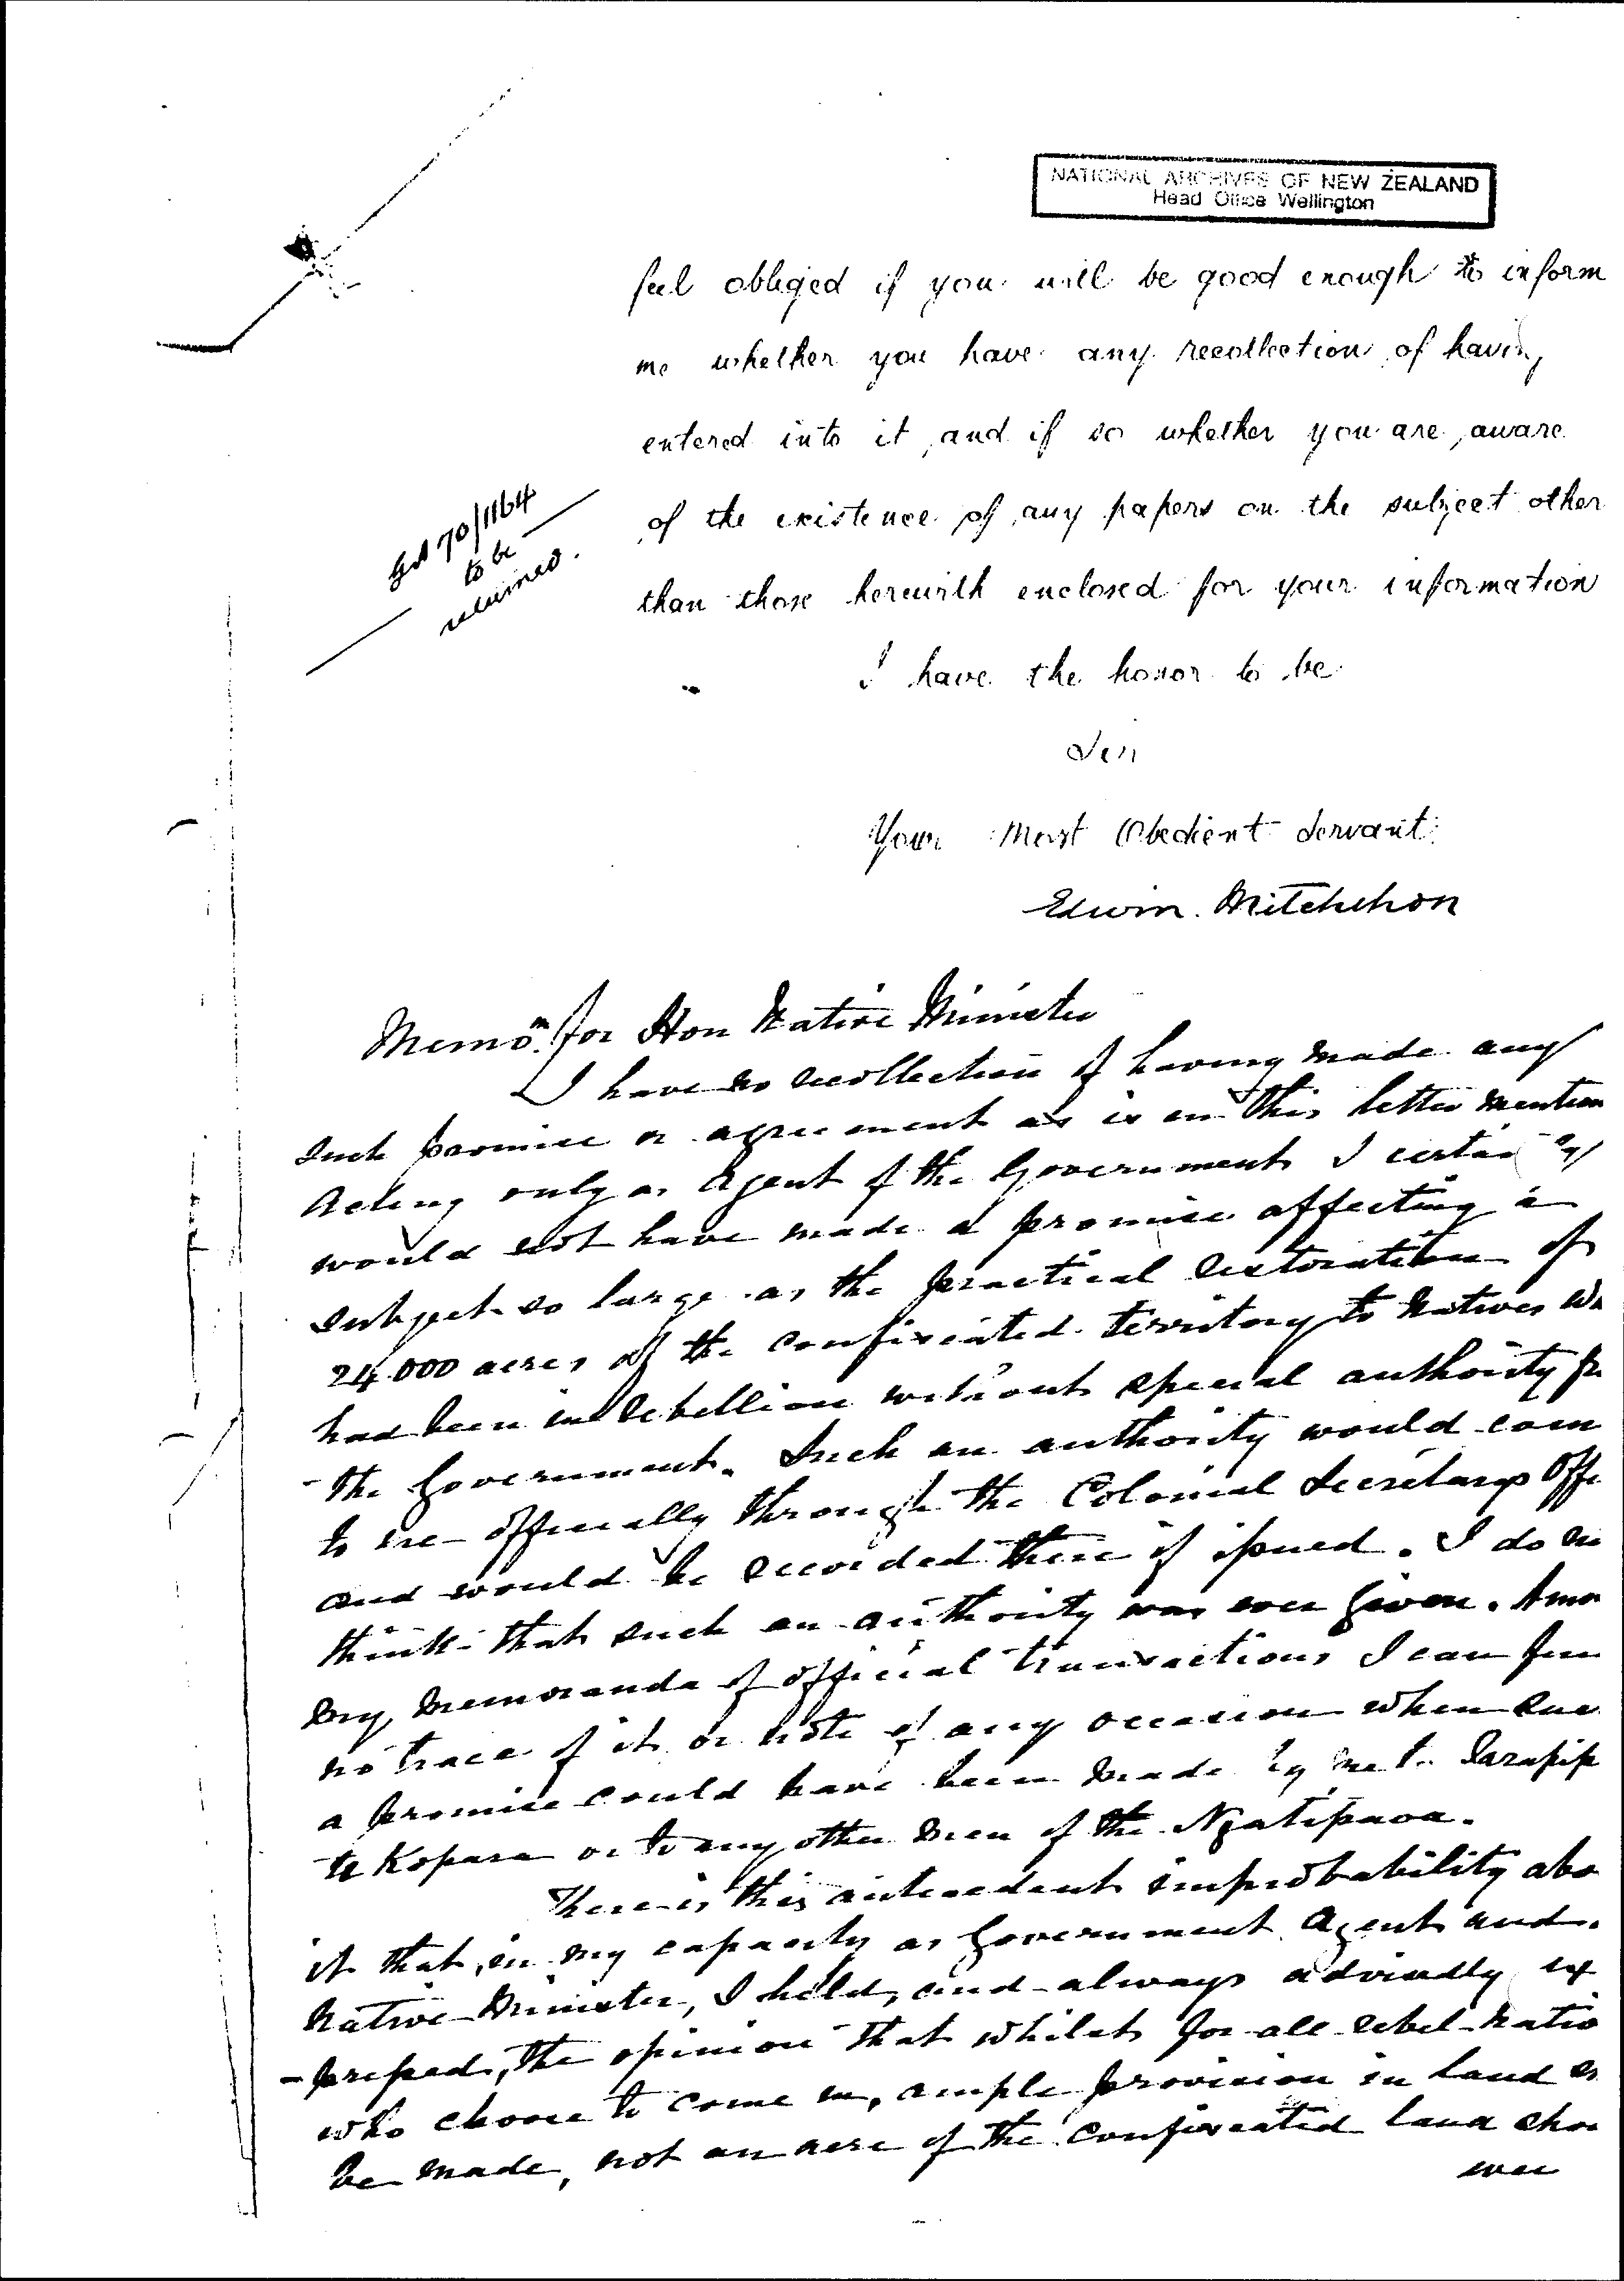 NATIONAL ARCHIVES OF NEW ZEALAND
Head Office Wellington
feel obliged if you will be good enough to inform
me whether you have any recollection of having
entered into it, and if so whether you are, aware
of the existence of any papers on the subject other
than those herewith enclosed for your information
70/1164
to be
returned.
I have the honor to be
Sir
Your Most Obedient Servant
Edwin. Mitchelson
Memo.m for Hon Native Minister
I have no recollection of having made any
such promise or agreement as is in this letter mention
Acting only as Agent of the Government I certai ly
would not have made a promise affecting a
subject so large as the practical restoration of
24.000 acres of the confiscated territory to Natives wh
had been in rebellion without special authority fr
the Government. Such an authority would com
to me officially through the Colonial Secretarys Offi
and would be recorded there if issued. I do no
think that such an authority was ever given. Amo
my memoranda of official transactions I can fin
no trace of it or note of any occasion when suc
a promise could have been made by me to Tarapip
te Kopara or to any other men of the Ngatipaoa.
There is this antecedent improbability abo
it that, in my capacity as Government Agent and
Native Minister, I held, and always advisedly ex
-pressed, the opinion that whilst for all rebel Nativ
who choose to come in, ample provision in land
be made, not an acre of the confiscated land shou